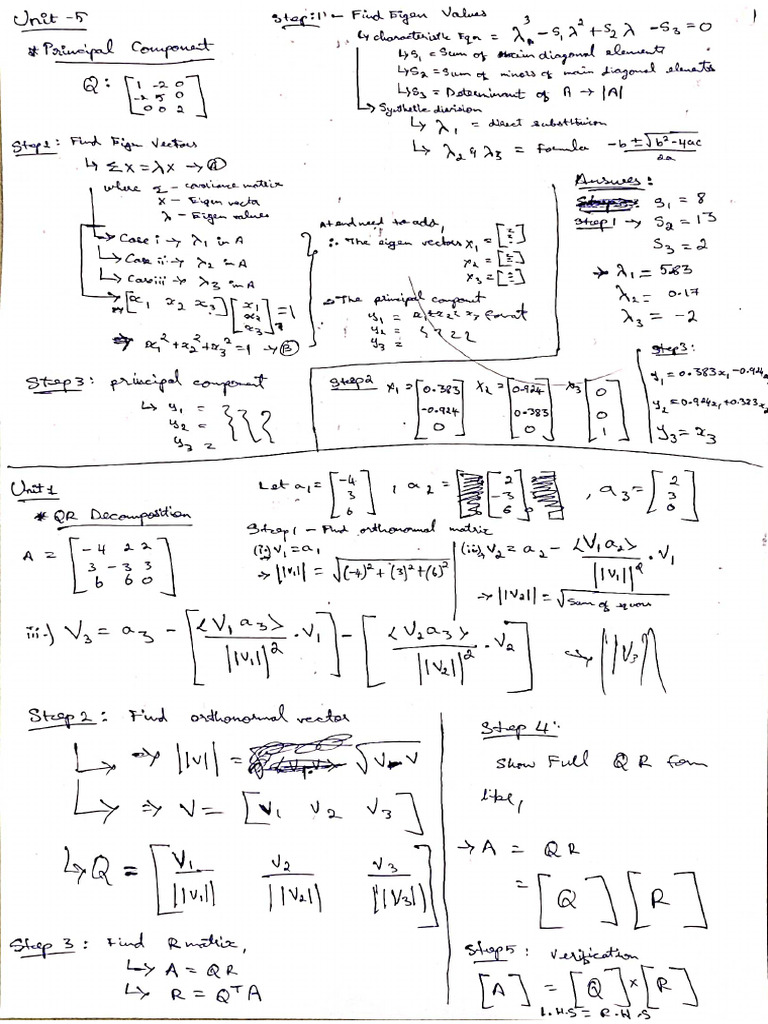 Unit -5
* Principal Component
Q: [1 -2 0
-2 5 0
0 0 2]
Step:1 - Find Eigen Values
↳ characteristic Eqn = λ³ - S₁λ² + S₂λ - S₃ = 0
↳ S₁ = Sum of main diagonal elements
↳ S₂ = Sum of minors of main diagonal elements
↳ S₃ = Determinant of A → |A|
↳ Synthetic division
↳ λ₁ = direct substitution
↳ λ₂ & λ₃ = formula (-b ± √(b² - 4ac))/2a
Step 2: Find Eigen Vectors
↳ Σx = λx → Ⓐ
where Σ - covariance matrix
x - Eigen vecta
λ - Eigen values
↳ Case i → λ₁ in A
↳ Case ii → λ₂ in A
↳ Case iii → λ₃ in A
→ [x₁ x₂ x₃] [x₁
x₂
x₃] = 1
⇒ x₁² + x₂² + x₃² = 1 → Ⓑ
At end need to add,
∴ The eigen vectors x₁ = [ ]
x₂ = [ ]
x₃ = [ ]
The principal component
y₁ =
y₂ =
y₃ =
Step 3: principal component
↳ y₁ =
y₂ =
y₃ =
Answer:
Step 1 → S₁ = 8
S₂ = 13
S₃ = 2
→ λ₁ = 5.83
λ₂ = 0.17
λ₃ = -2
Step 2 x₁ = [0.383
-0.924
0] x₂ = [0.924
0.383
0] x₃ [0
0
1]
Step 3:
y₁ = 0.383x₁ - 0.924
y₂ = 0.924x₁ + 0.383x₂
y₃ = x₃
Unit 1
* QR Decomposition
A = [-4 2 2
3 -3 3
6 6 0]
Let a₁ = [-4
3
6], a₂ = [2
-3
6], a₃ = [2
3
0]
Step 1 - Find orthonormal matrix
(i) V₁ = a₁
→ ||V₁|| = √((-4)² + (3)² + (6)²)
(ii) V₂ = a₂ - <V₁ a₂>/||V₁||² · V₁
→ ||V₂|| = √(Sum of squares)
iii) V₃ = a₃ - [<V₁ a₃>/||V₁||² · V₁] - [<V₂ a₃>/||V₂||² · V₂] → ||V₃||
Step 2: Find orthonormal vector
↳ ⇒ ||v|| = √(V · V)
↳ ⇒ V = [V₁ V₂ V₃]
↳ Q = [V₁/||V₁|| V₂/||V₂|| V₃/||V₃||]
Step 3: Find R matrix,
↳ A = QR
↳ R = QᵀA
Step 4:
Show Full QR form
like,
→ A = QR
= [Q] [R]
Step 5: Verification
[A] = [Q] × [R]
L.H.S = R.H.S